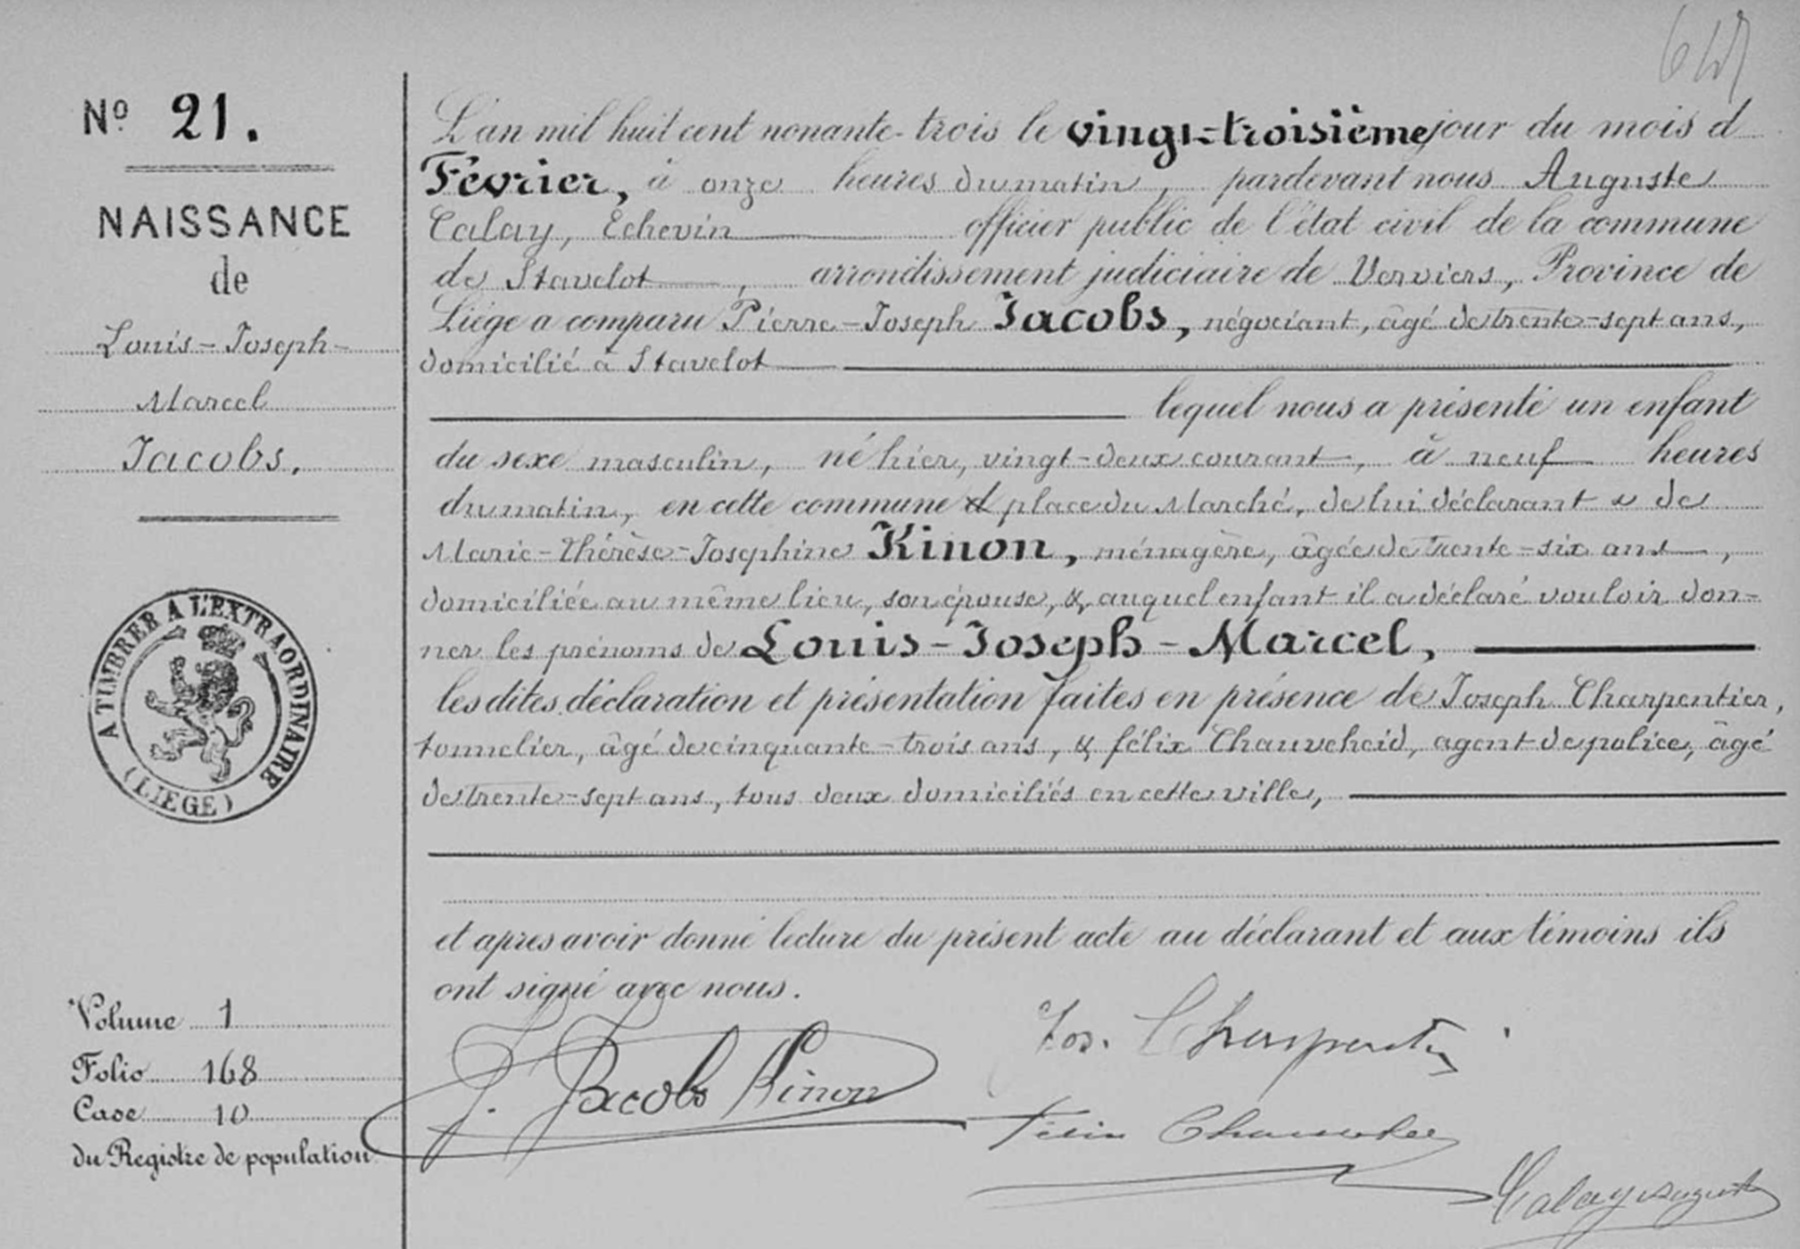 Nº 21.
NAISSANCE
de
Louis-Joseph-
Marcel
Jacobs.
A TIMBRER A L'EXTRAORDINAIRE
(LIEGE)
Volume 1
Folio 168
Case 10
du Registre de population
L'an mil huit cent nonante-trois le vingt-troisième jour du mois d
Février, à onze heures du matin, pardevant nous Auguste
Talay, Echevin officier public de l'état civil de la commune
de Stavelot, arrondissement judiciaire de Verviers, Province de
Liège a comparu Pierre-Joseph Jacobs, négociant, âgé de trente-sept ans,
domicilié à Stavelot
lequel nous a présenté un enfant
du sexe masculin, né hier, vingt-deux courant, à neuf heures
du matin, en cette commune place du Marché, de lui déclarant & de
Marie-Thérèse-Josephine Kinon, ménagère, âgée de trente-six ans,
domiciliée au même lieu, son épouse, & auquel enfant il a déclaré vouloir don-
ner les prénoms de Louis-Joseph-Marcel,
les dites déclaration et présentation faites en présence de Joseph Charpentier,
tonnelier, âgé de cinquante-trois ans, & félix Chauveheid, agent de police, âgé
de trente-sept ans, tous deux domiciliés en cette ville,
et après avoir donné lecture du présent acte au déclarant et aux témoins ils
ont signé avec nous.
J. Jacobs Kinon
Jos. Charpentier
Félix Chauveheid
Talay Auguste